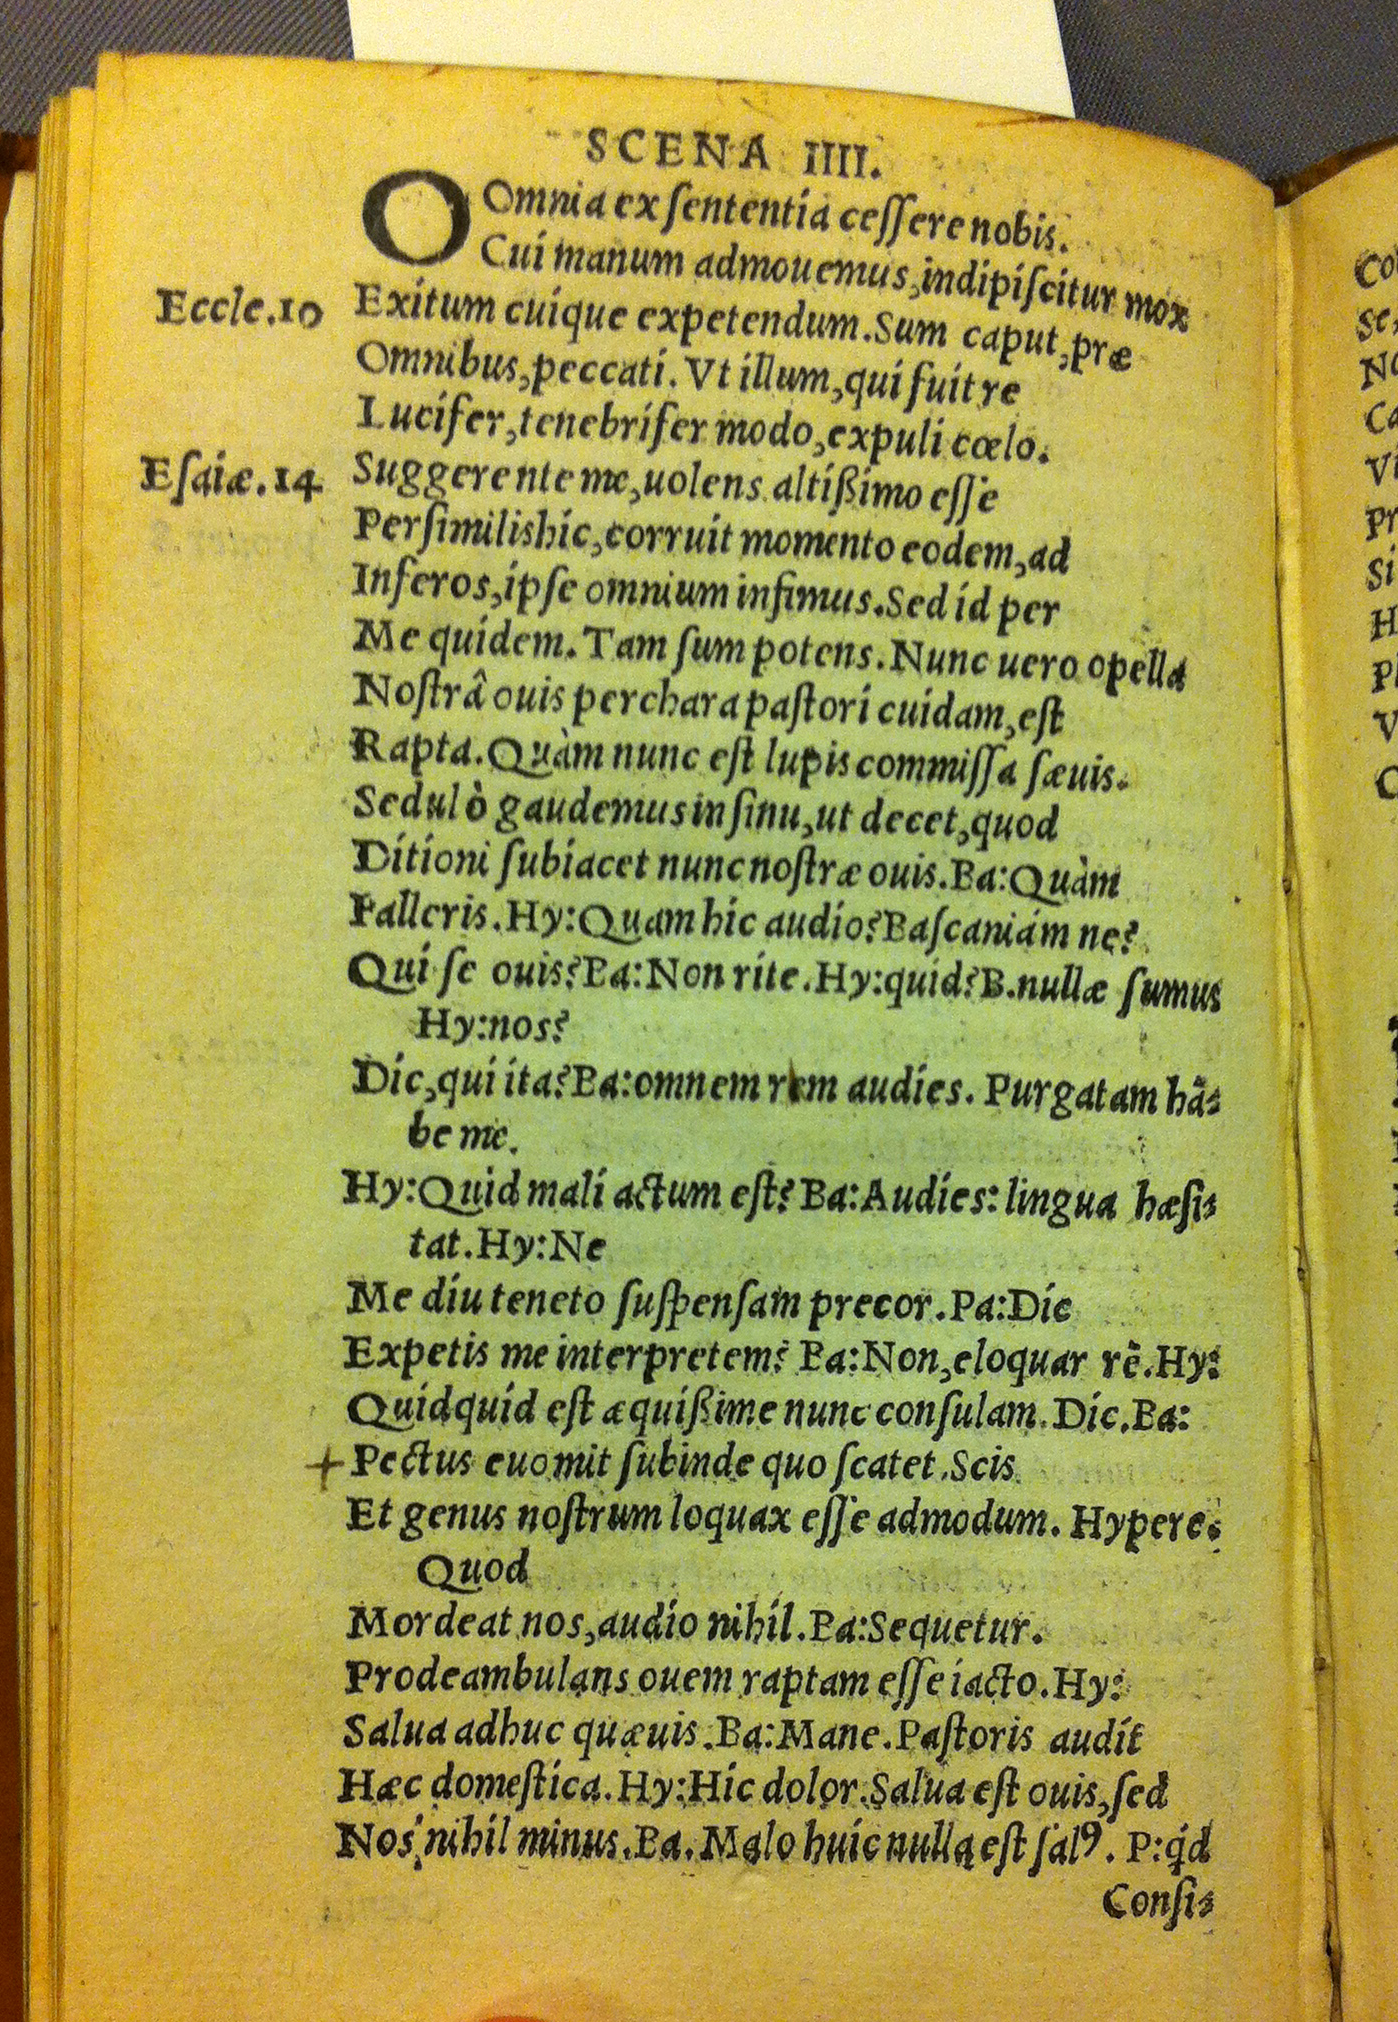 SCENA IIII.
OOmnia ex ſententia ceſſere nobis.
Cui manum admouemus, indipiſcitur mox
Eccle.10 Exitum cuique expetendum. Sum caput, præ
Omnibus, peccati. Vt illum, qui fuit re
Lucifer, tenebrifer modo, expuli cœlo.
Eſaiæ.14 Suggerente me, uolens altißimo eſſe
Perſimilis hic, corruit momento eodem, ad
Inferos, ipſe omnium infimus. Sed id per
Me quidem. Tam ſum potens. Nunc uero opella
Noſtrâ ouis perchara paſtori cuidam, eſt
Rapta. Quàm nunc eſt lupis commiſſa ſæuis.
Sedulò gaudemus in ſinu, ut decet, quod
Ditioni ſubiacet nunc noſtræ ouis. Ba: Quàm
Falleris. Hy: Quam hic audio? Baſcaniám ne?
Qui ſe ouis? Ba: Non rite. Hy: quid? B. nullæ ſumus
Hy: nos?
Dic, qui ita? Ba: omnem rem audies. Purgatam hã⸗
be me.
Hy: Quid mali actum eſt? Ba: Audies: lingua hæſi⸗
tat. Hy: Ne
Me diu teneto ſuſpenſam precor. Pa: Dic
Expetis me interpretem? Ba: Non, eloquar rẽ. Hy:
Quidquid eſt æquißime nunc conſulam. Dic. Ba:
+ Pectus euomit ſubinde quo ſcatet. Scis
Et genus noſtrum loquax eſſe admodum. Hypere.
Quod
Mordeat nos, audio nihil. Ba: Sequetur.
Prodeambulans ouem raptam eſſe iacto. Hy:
Salua adhuc quæuis. Ba: Mane. Paſtoris audit
Hæc domeſtica. Hy: Hic dolor. Salua eſt ouis, ſed
Nos nihil minus. Ba. Malo huic nulla eſt ſalꝰ. P: qd́
Conſi⸗